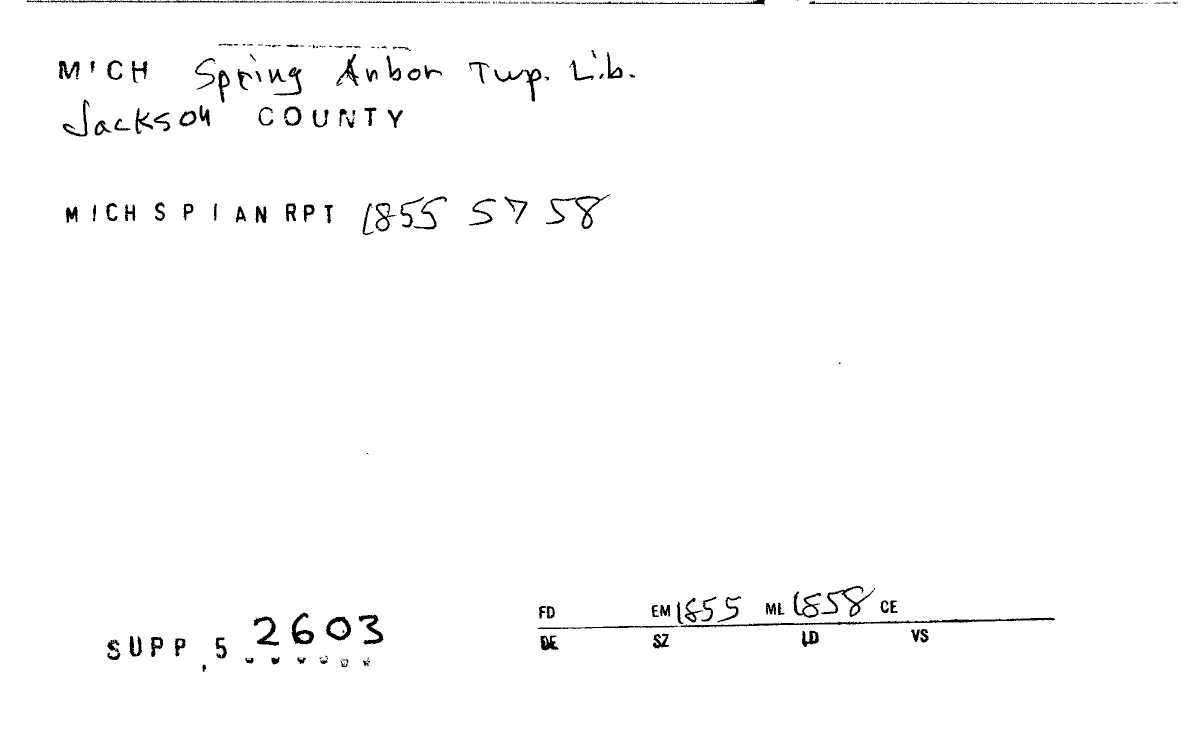 MICH Spring Arbor Twp. Lib.
Jackson COUNTY
MICH S P I AN RPT 1855 57 58
SUPP, 5 2603
FD EM 1855 ML 1858 CE
DE SZ LD VS